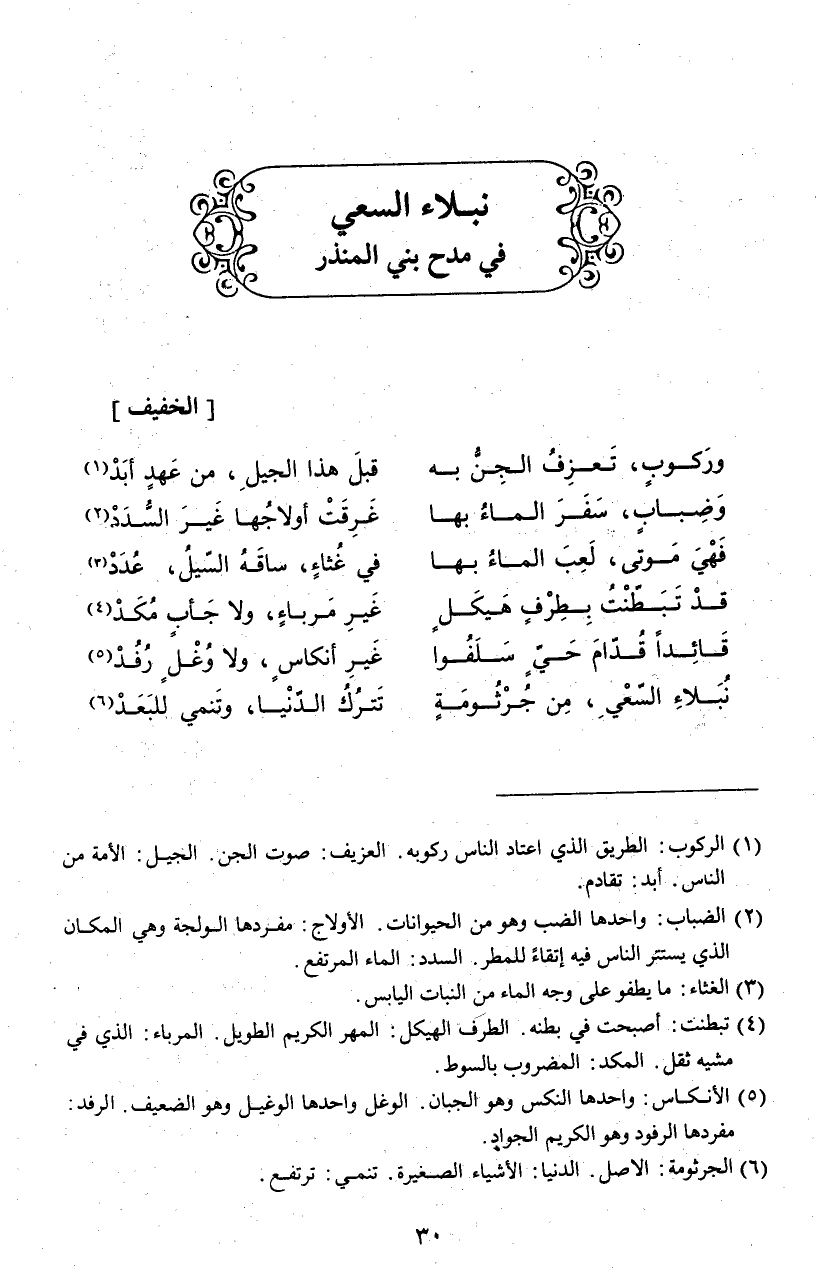 نبلاء السعي
في مدح بني المنذر
[ الخفيف ]
وركوبٍ، تَعزِفُ الجِنُّ به قبلَ هذا الجيلِ، من عَهدٍ أبَدْ(١)
وَضِبابٍ، سَفَرَ الماءُ بها غَرِقَتْ أولاجُها غَيرَ السُّدَدْ(٢)
فَهْيَ مَوتى، لَعِبَ الماءُ بها في غُثاءٍ، ساقَهُ السّيلُ، عُدَدْ(٣)
قدْ تَبَطّنْتُ بِطِرْفٍ هَيكَلٍ غَيرِ مَرباءٍ، ولا جَأبٍ مُكَدْ(٤)
قَائِداً قُدّامَ حَيٍّ سَلَفُوا غَيرِ أنكاسٍ، ولا وُغْلٍ رُفُدْ(٥)
نُبَلاءِ السّعْيِ، مِن جُرْثُومَةٍ تَترُكُ الدّنْيا، وتَنمي للبَعَدْ(٦)
(١) الركوب: الطريق الذي اعتاد الناس ركوبه. العزيف: صوت الجن. الجيل: الأمة من
الناس. أبد: تقادم.
(٢) الضباب: واحدها الضب وهو من الحيوانات. الأولاج: مفردها الولجة وهي المكان
الذي يستتر الناس فيه إتقاءً للمطر. السدد: الماء المرتفع.
(٣) الغثاء: ما يطفو على وجه الماء من النبات اليابس.
(٤) تبطنت: أصبحت في بطنه. الطرف الهيكل: المهر الكريم الطويل. المرباء: الذي في
مشيه ثقل. المكد: المضروب بالسوط.
(٥) الأنكاس: واحدها النكس وهو الجبان. الوغل واحدها الوغيل وهو الضعيف. الرفد:
مفردها الرفود وهو الكريم الجواد.
(٦) الجرثومة: الاصل. الدنيا: الأشياء الصغيرة. تنمي: ترتفع.
٣٠